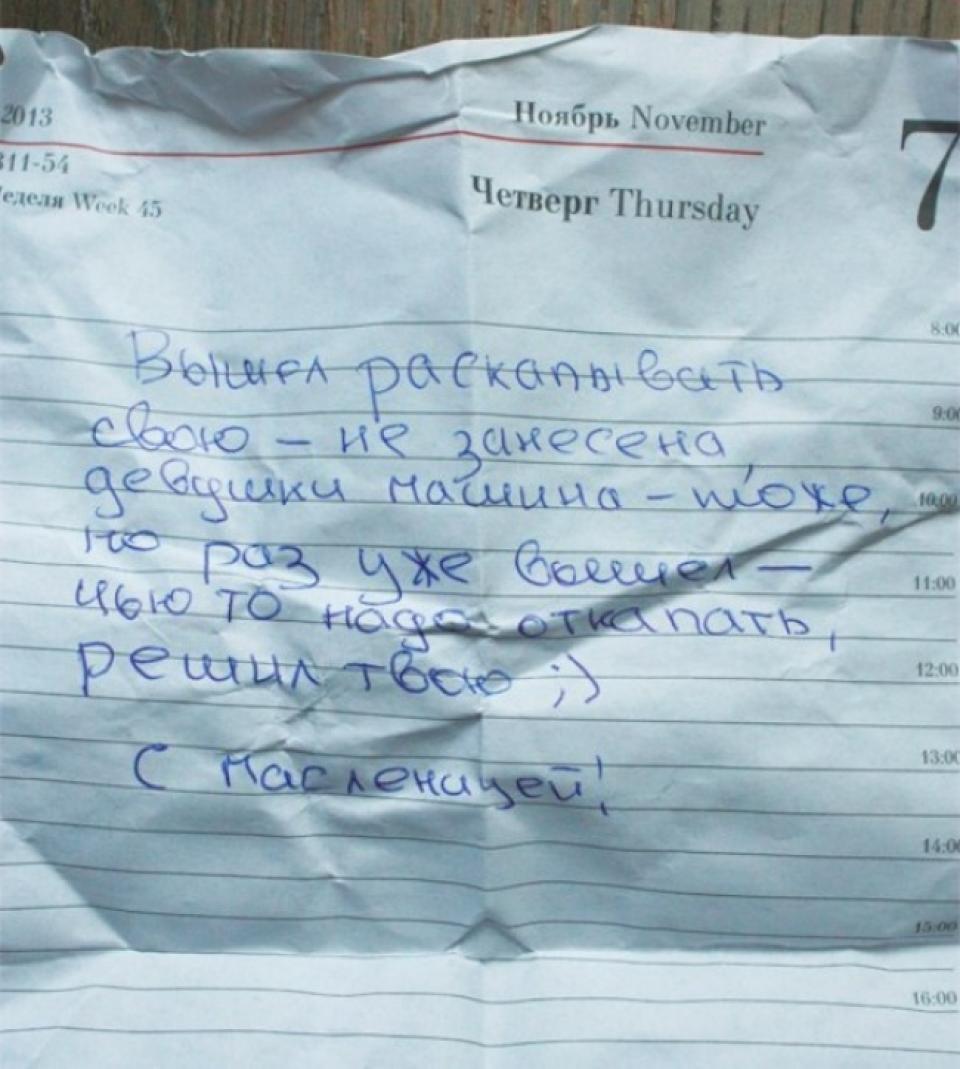 2013
Ноябрь November
7
311-54
Неделя Week 45
Четверг Thursday
8:00
Вышел раскапывать
9:00
свою - не занесена,
девушки машина - тоже,
10:00
но раз уже вышел -
11:00
чью то надо откапать,
12:00
решил твою ;)
13:00
С Масленицей!
14:00
15:00
16:00